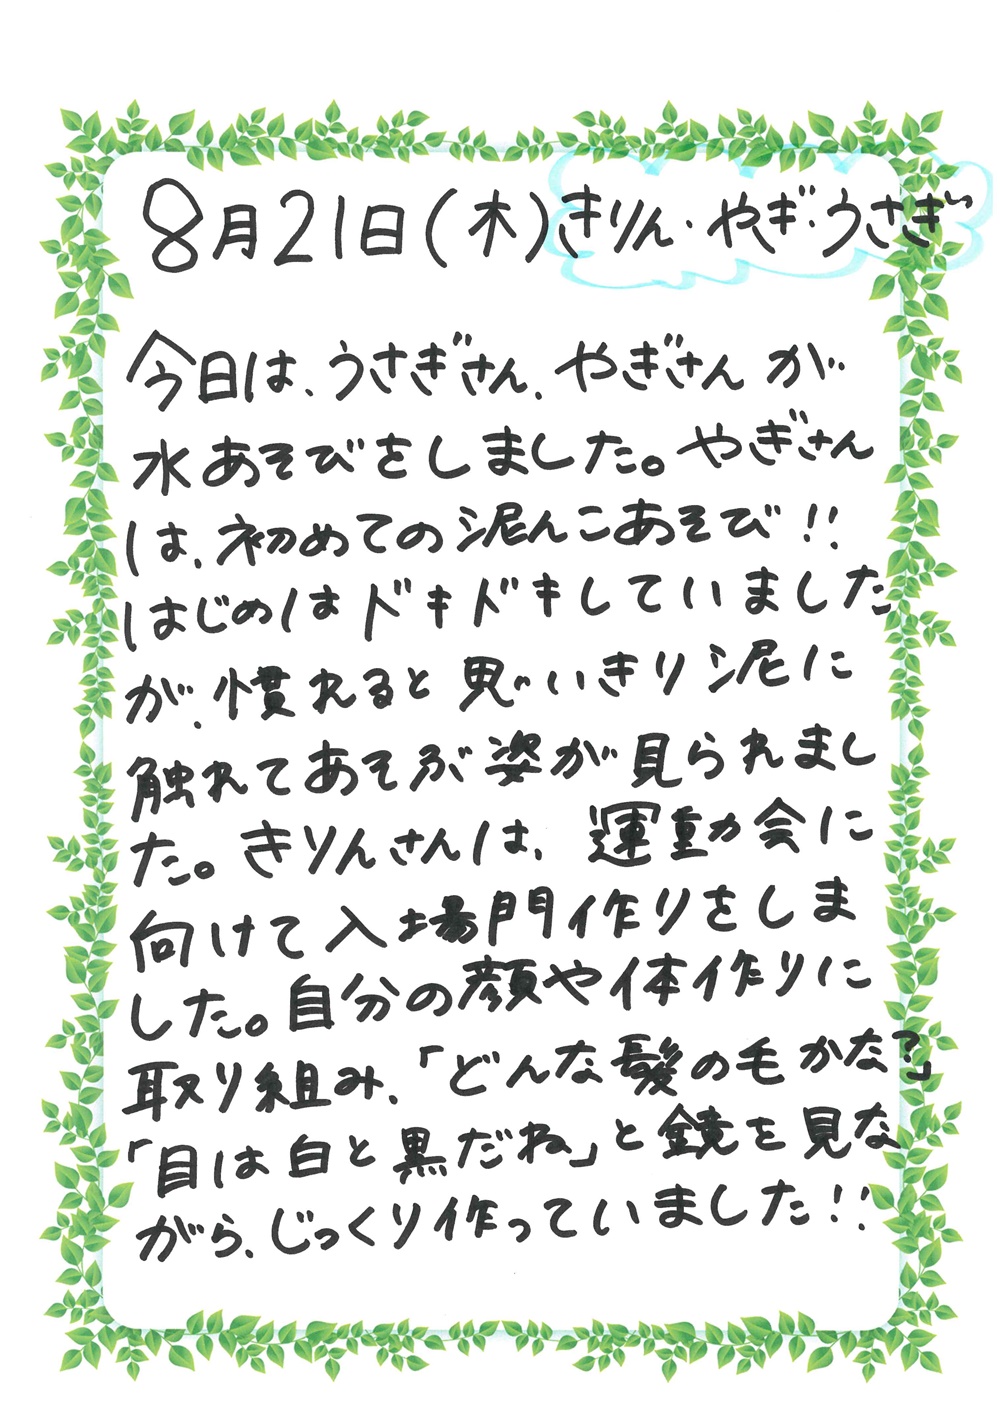 8月21日(木)きりん・やぎ・うさぎ
今日は、うさぎさん、やぎさんが
水あそびをしました。やぎさん
は、初めての泥んこあそび!!
はじめはドキドキしていました
が、慣れると思いきり泥に
触れてあそぶ姿が見られまし
た。きりんさんは、運動会に
向けて入場門作りをしま
した。自分の顔や体作りに
取り組み、「どんな髪の毛かな?」
「目は白と黒だね」と鏡を見な
がら、じっくり作っていました!!